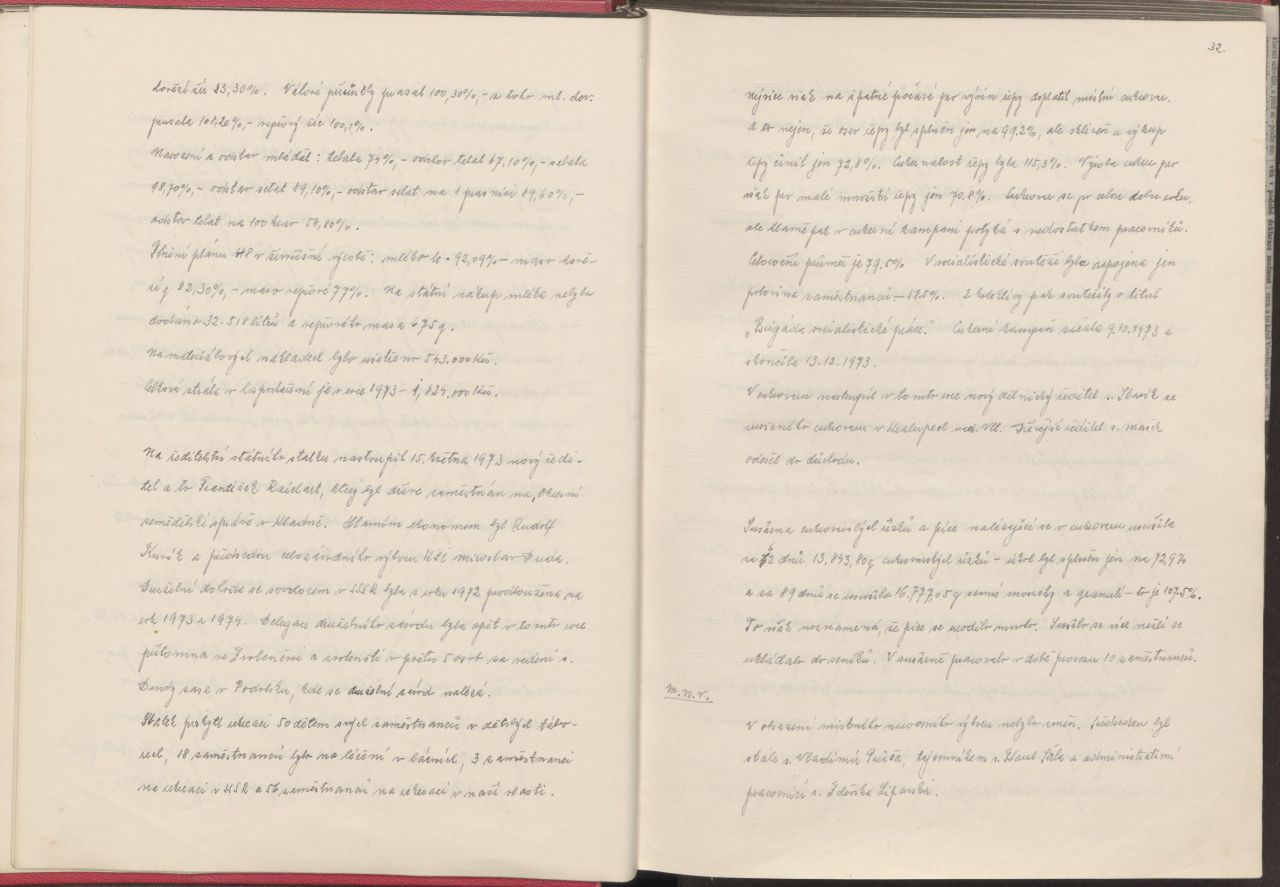 hovězí žír 83,30%. Válové přírůstky prasat 100,30%,- z toho ml. dor.
prasata 102,20%,- vepřový žír 100,1%.
Narození a odstav mláďat: telata 74%,- odstav telat 67,10%,- selata
98,70%,- odstav selat 89,10%,- odstav selat na 1 prasnici 89,60%,-
odstav telat na 100 krav 58,80%.
Plnění plánu HP v živočišné výrobě: mléko - 92,09% - maso hově-
zí q 82,30%,- maso vepřové 77%. Na státní nákup mléka nebylo
dodáno 32.518 litrů a vepřového masa 675 q.
Na materiálových nákladech bylo ušetřeno 543.000 Kčs.
Celková ztráta v hospodaření je v roce 1973 - 1,824.000 Kčs.
Na ředitelství státního statku nastoupil 15. května 1973 nový ředi-
tel a to František Raichart, který byl dříve zaměstnán na Okresní
zemědělské správě v Kladně. Hlavním ekonomem byl Rudolf
a předsedou celozávodního výboru KSČ Miroslav Duda.
Družební dohoda se sovchozem v SSSR byla z roku 1972 prodloužena na
rok 1973 a 1974. Delegace družebního závodu byla opět v tomto roce
přítomna ve Zvoleněvsi a zvolenští v počtu 5 osob za vedení s.
Dudy zase v Podolsku, kde se družební závod nalézá.
Statek poskytl rekreaci 50 dětem svých zaměstnanců v dětských tábo-
rech, 18 zaměstnanců bylo na léčení v lázních, 3 zaměstnanci
na rekreaci v a 56 zaměstnanců na rekreaci v naší vlasti.
32.
Nejvíce však na špatné počasí pro výživu řepy doplatil místní cukrovar.
A to nejen, že osev řepy byl splněn jen na 99.2%, ale sklizeň a výkup
řepy činil jen 72,8%. Cukernatost řepy byla 115,3%. Výroba cukru pro
však pro malé množství řepy jen 70.8%. Cukrovar se po celou dobu roku,
ale hlavně pak v cukerní kampani potýká s nedostatkem pracovníků.
Celoroční průměr je 79.5%. V socialistické soutěži byla zapojena jen
polovina zaměstnanců - 58.5%. 2 kolektivy pak soutěžily o titul
„Brigáda socialistické práce." Cukerní kampaň začala 9.10.1973 a
skončila 13.12.1973.
V cukrovaru nastoupil v tomto roce nový dělnický ředitel s. ze
zrušeného cukrovaru v Kralupech nad. Vlt. Dřívější ředitel s. Mašek
odešel do důchodu.
Sušárna cukrovarských řízků a píce nalézající se v cukrovaru usušila
za 72 dnů 13.843,80 q cukrovarských řízků - úkol byl splněn jen na 72,9%
a za 89 dnů se usušilo 16.777,05 q senné moučky a granulí - to je 107.5%.
To však neznamená, že píce se urodilo mnoho. Sušilo se více nežli se
ukládalo do seníků. V sušárně pracovalo v době provozu 10 zaměstnanců.
M.n.v.
V obsazení místního národního výboru nebylo změn. Předsedou byl
stále s. Vladimír Pušča, tajemníkem s. Karel a administrativní
pracovnicí s. Zdeňka Lipavská.